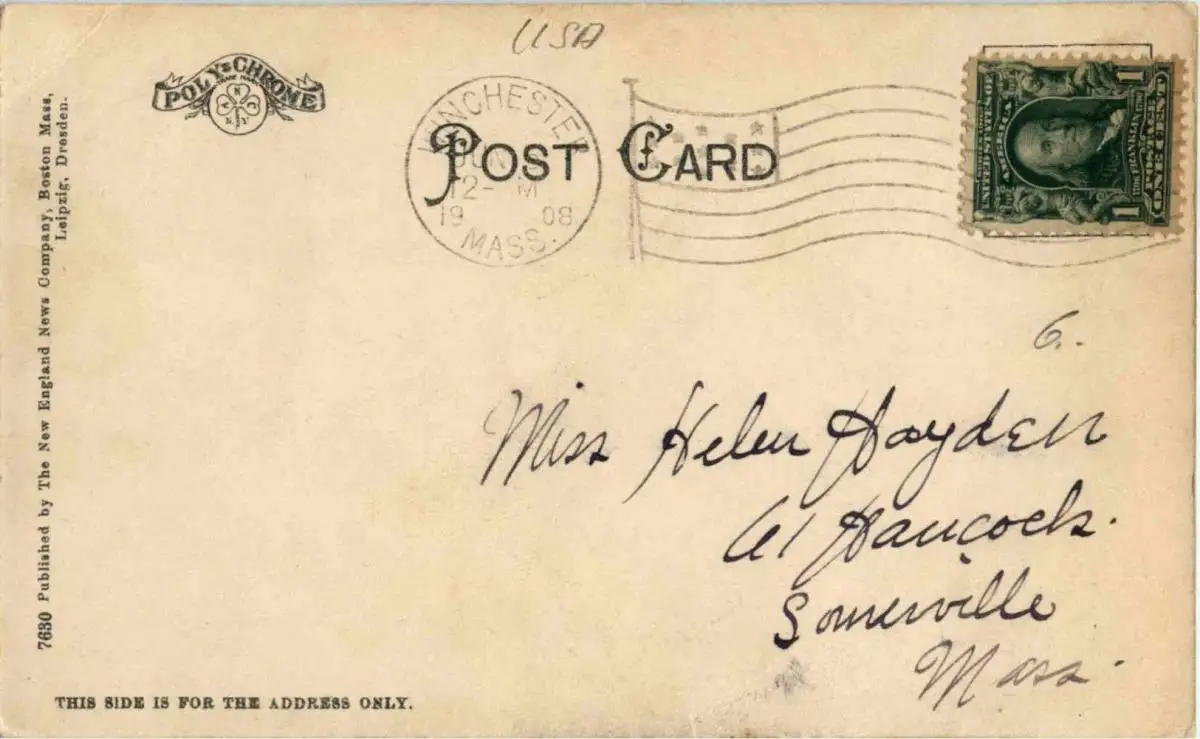 USA
POLY-CHROME
TRADE MARK
WINCHESTER
JUN
12- M
19 08
MASS.
POST CARD
UNITED STATES OF
AMERICA
1 1
ONE CENT
7630 Published by The New England News Company, Boston Mass,
Leipzig, Dresden.
6.
Miss Helen Hayden
61 Hancock.
Somerville
Mass.
THIS SIDE IS FOR THE ADDRESS ONLY.